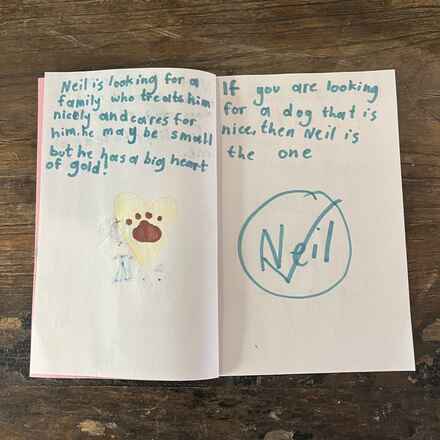 Neil is looking for a
family who treats him
nicely and cares for
him. he may be small
but he has a big heart
of gold!
N
If you are looking
for a dog that is
nice, then Neil is
the one
Neil